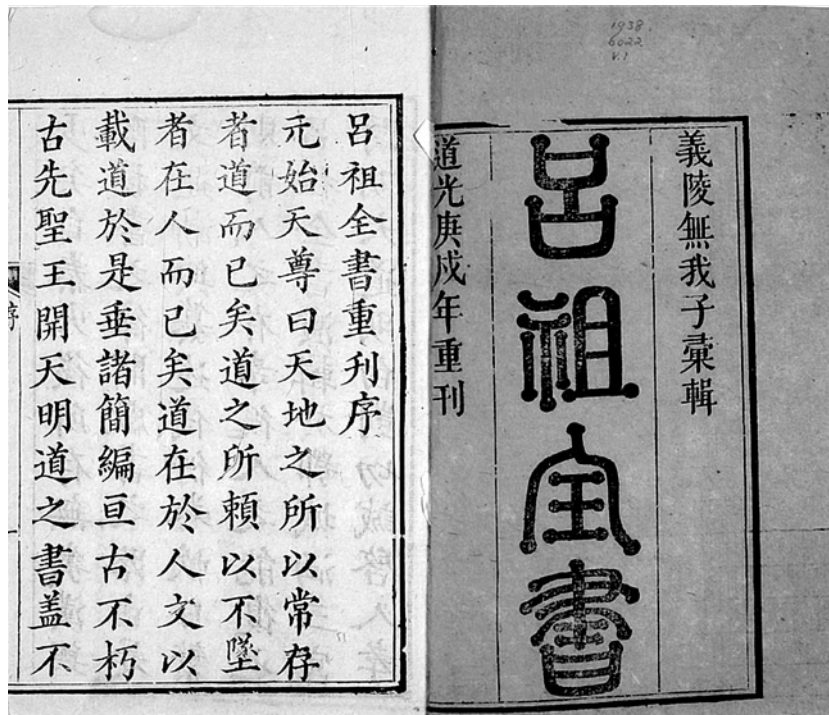 1938
6022
v.1
義陵無我子彙輯
呂祖全書
道光庚戌年重刊
呂祖全書重刊序
元始天尊曰天地之所以常存
者道而已矣道之所頼以不墜
者在人而已矣道在於人文以
載道於是垂諸簡編亘古不朽
古先聖王開天明道之書蓋不
序